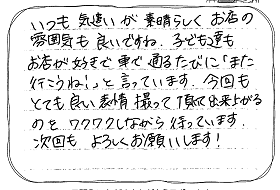 いつも気遣いが素晴らしくお店の
雰囲気も良いですね。子ども達も
お店が好きで車で通るたびに「また
行こうね!」と言っています。今回も
とても良い表情撮って頂て出来上がる
のをワクワクしながら待っています。
次回もよろしくお願いします!